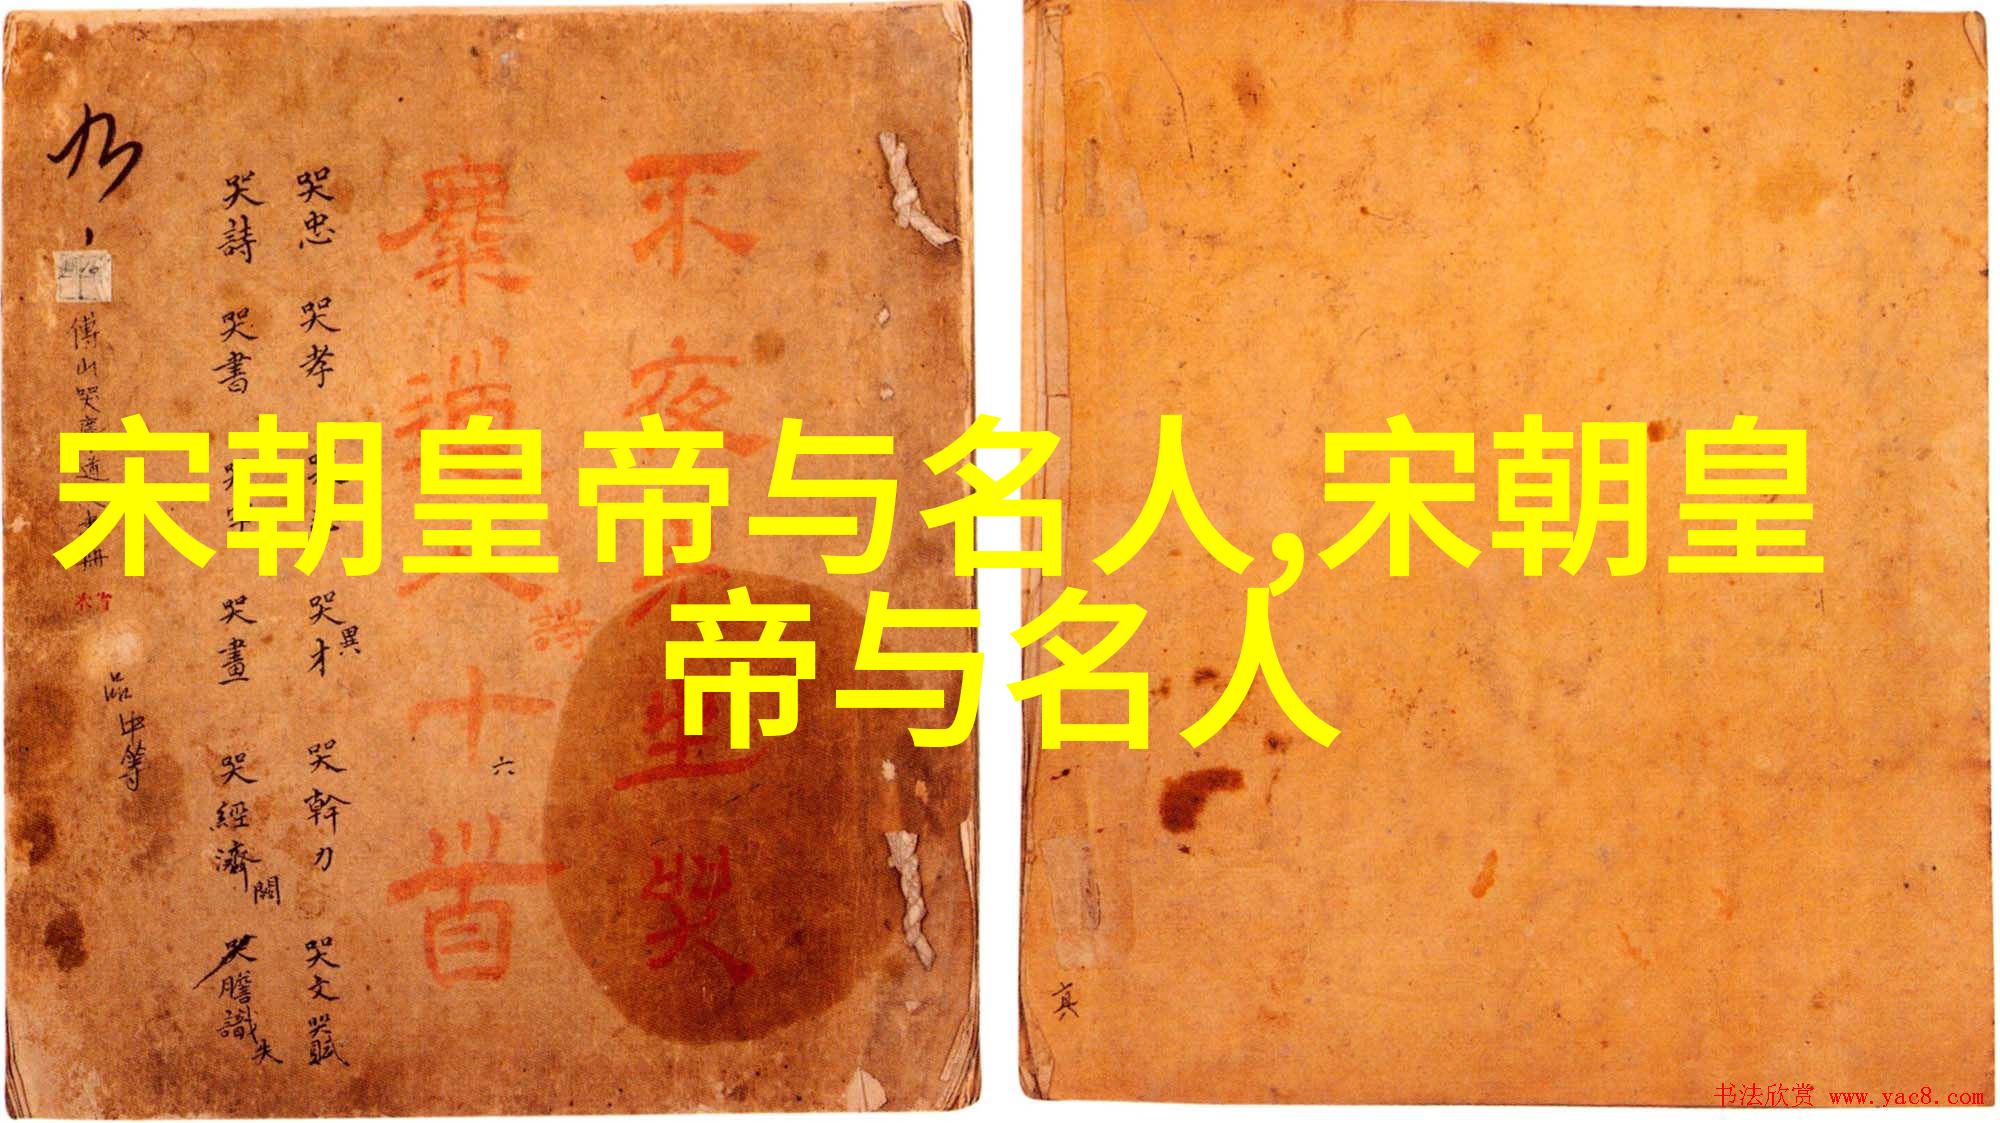 宋朝皇帝与名人,宋朝皇
帝与名人
不夜
十首
詩
六
哭忠 哭孝
哭才異 哭幹力
哭文 哭賦
哭詩 哭書
哭畫 哭經濟 關
哭膽識 失
傅山哭
品中等
真
书法欣赏 www.yac8.com